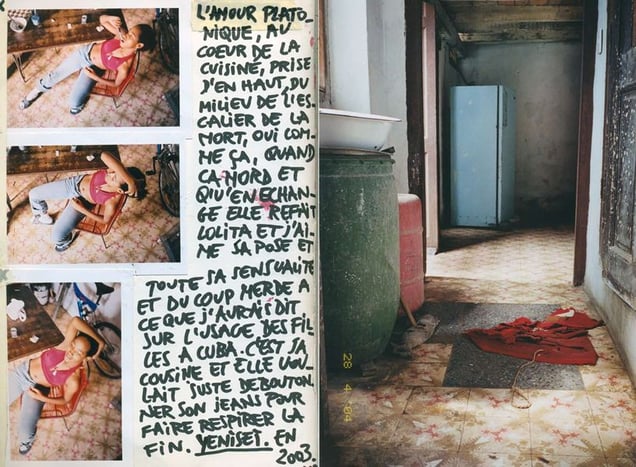 L'AMOUR PLATO_
NIQUE, AU
COEUR DE LA
CUISINE, PRISE
D'EN HAUT, DU
MILIEU DE L'ES_
CALIER DE LA
MORT, OUI COM_
ME ÇA, QUAND
ÇA MORD ET
QU'EN ECHAN_
GE ELLE REFAIT
LOLITA ET J'AI_
ME SA POSE ET
TOUTE SA SENSUALITÉ
ET DU COUP MERDE A
CE QUE J'AURAIS DIT
SUR L'USAGE DES FIL
LES A CUBA. C'EST SA
COUSINE ET ELLE VOU_
LAIT JUSTE DEBOUTON_
NER SON JEANS POUR
FAIRE RESPIRER LA
FIN. YENISEI. EN
2003.
28 4 '04